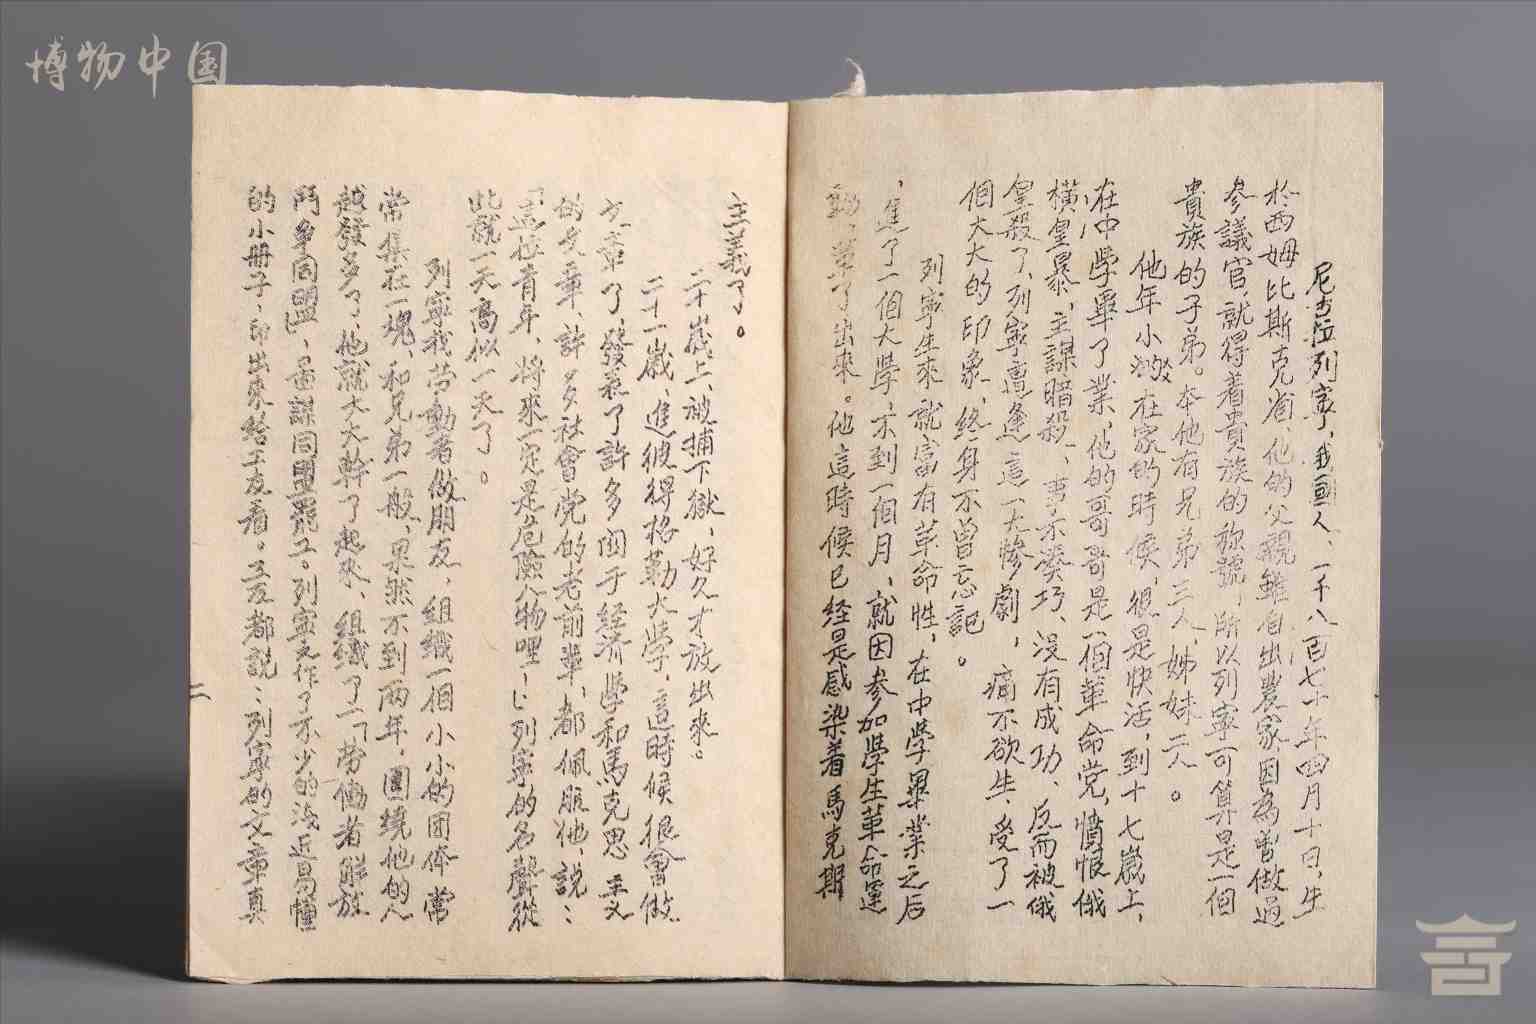 博物中国
尼古拉列寧，我國人，一千八百七十年四月十日，生
於西姆比斯克省，他的父親雖自出農家因為曾做過
參議官，就得着貴族的称號，所以列寧可算是一個
貴族的子弟。本他有兄弟三人，姊妹二人。
他年小的在家的時候，很是快活，到十七歲上，
在中學畢了業，他的哥哥是一個革命党，憤恨俄
橫皇暴，主謀暗殺，事不湊巧，沒有成功，反而被俄
皇殺了，列寧遭逢這一大惨劇，痛不欲生，受了一
個大大的印象，終身不曾忘記。
列寧生來就富有革命性，在中學畢業之后
，進了一個大學，未到一個月，就因参加學生革命運
動，革了出來。他這時候已経是感染着馬克斯
主義了。
二十歲上，被捕下獄，好久才放出來。
二十一歲，進彼得格勒大學，這時候很會做
文章了，發表了許多関于経済學和馬克思主义
的文章，許多社會党的老前輩，都佩服他，說：
「這位青年，將來一定是危險人物哩！」列寧的名聲從
此就一天高似一天了。
列寧找勞動者做朋友，組織一個小小的团体常
常集在一塊，和兄弟一般，果然不到兩年，圍繞他的人
越發多了，他就大大幹了起來，組織了一「勞働者解放
鬥爭同盟」，圖謀同盟罷工。列寧又作了不少的淺近易懂
的小册子，印出來给工友看。工友都説：列寧的文章真
二